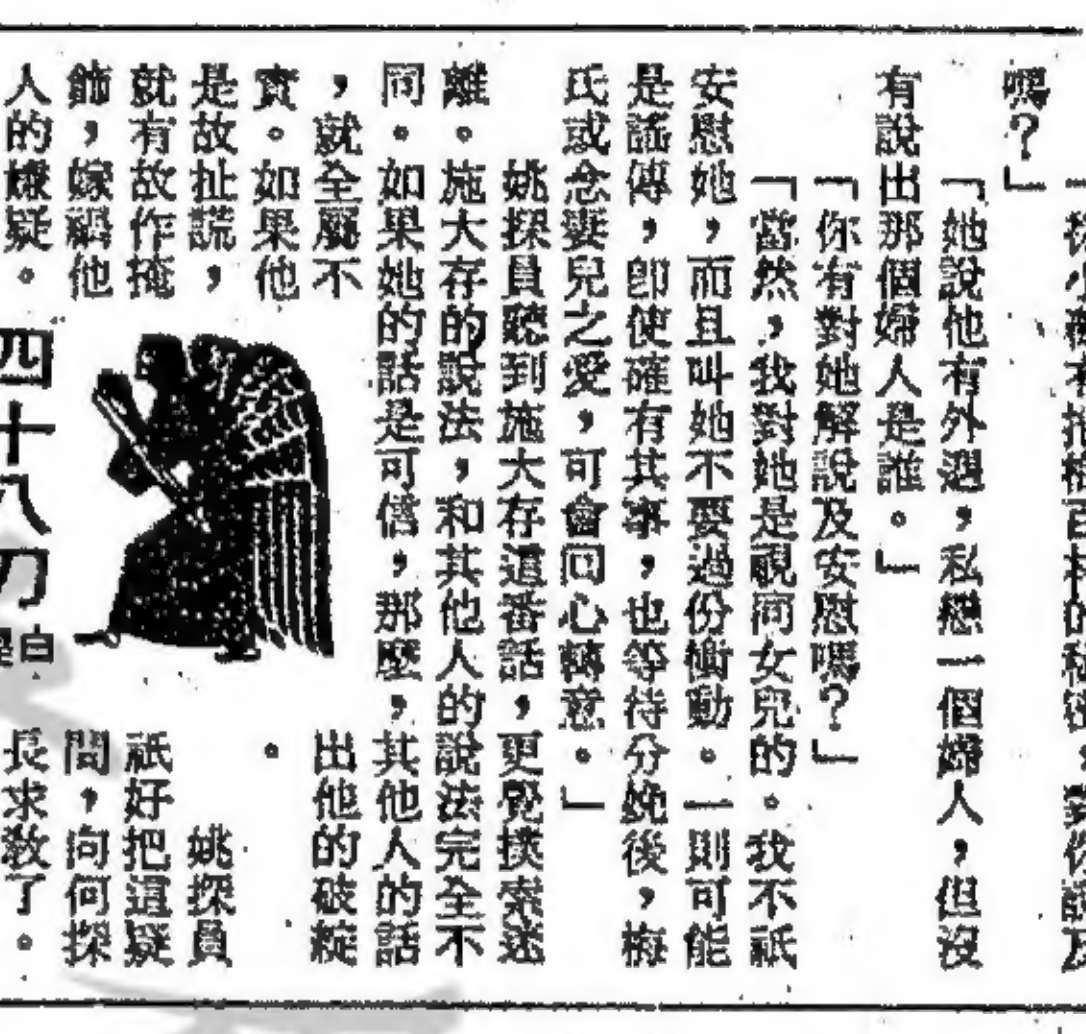 嗎？」
「她說他有外遇，私戀一個婦人，但沒
有說出那個婦人是誰。」
「你有對她解說及安慰嗎？」
「當然，我對她是視同女兒的。我不祇
安慰她，而且叫她不要過份衝動。一則可能
是謠傳，即使確有其事，也等待分娩後，梅
氏或念妻兒之愛，可會回心轉意。」
姚探員聽到施大存這番話，更覺撲索迷
離。施大存的說法，和其他人的說法完全不
同。如果她的話是可信，那麼，其他人的話
，就全屬不
實。如果他
是故扯謊，
就有故作掩
飾，嫁禍他
人的嫌疑。
四十八刀
白
出他的破綻
。
姚探員
祇好把這疑
問，向何探
長求教了。